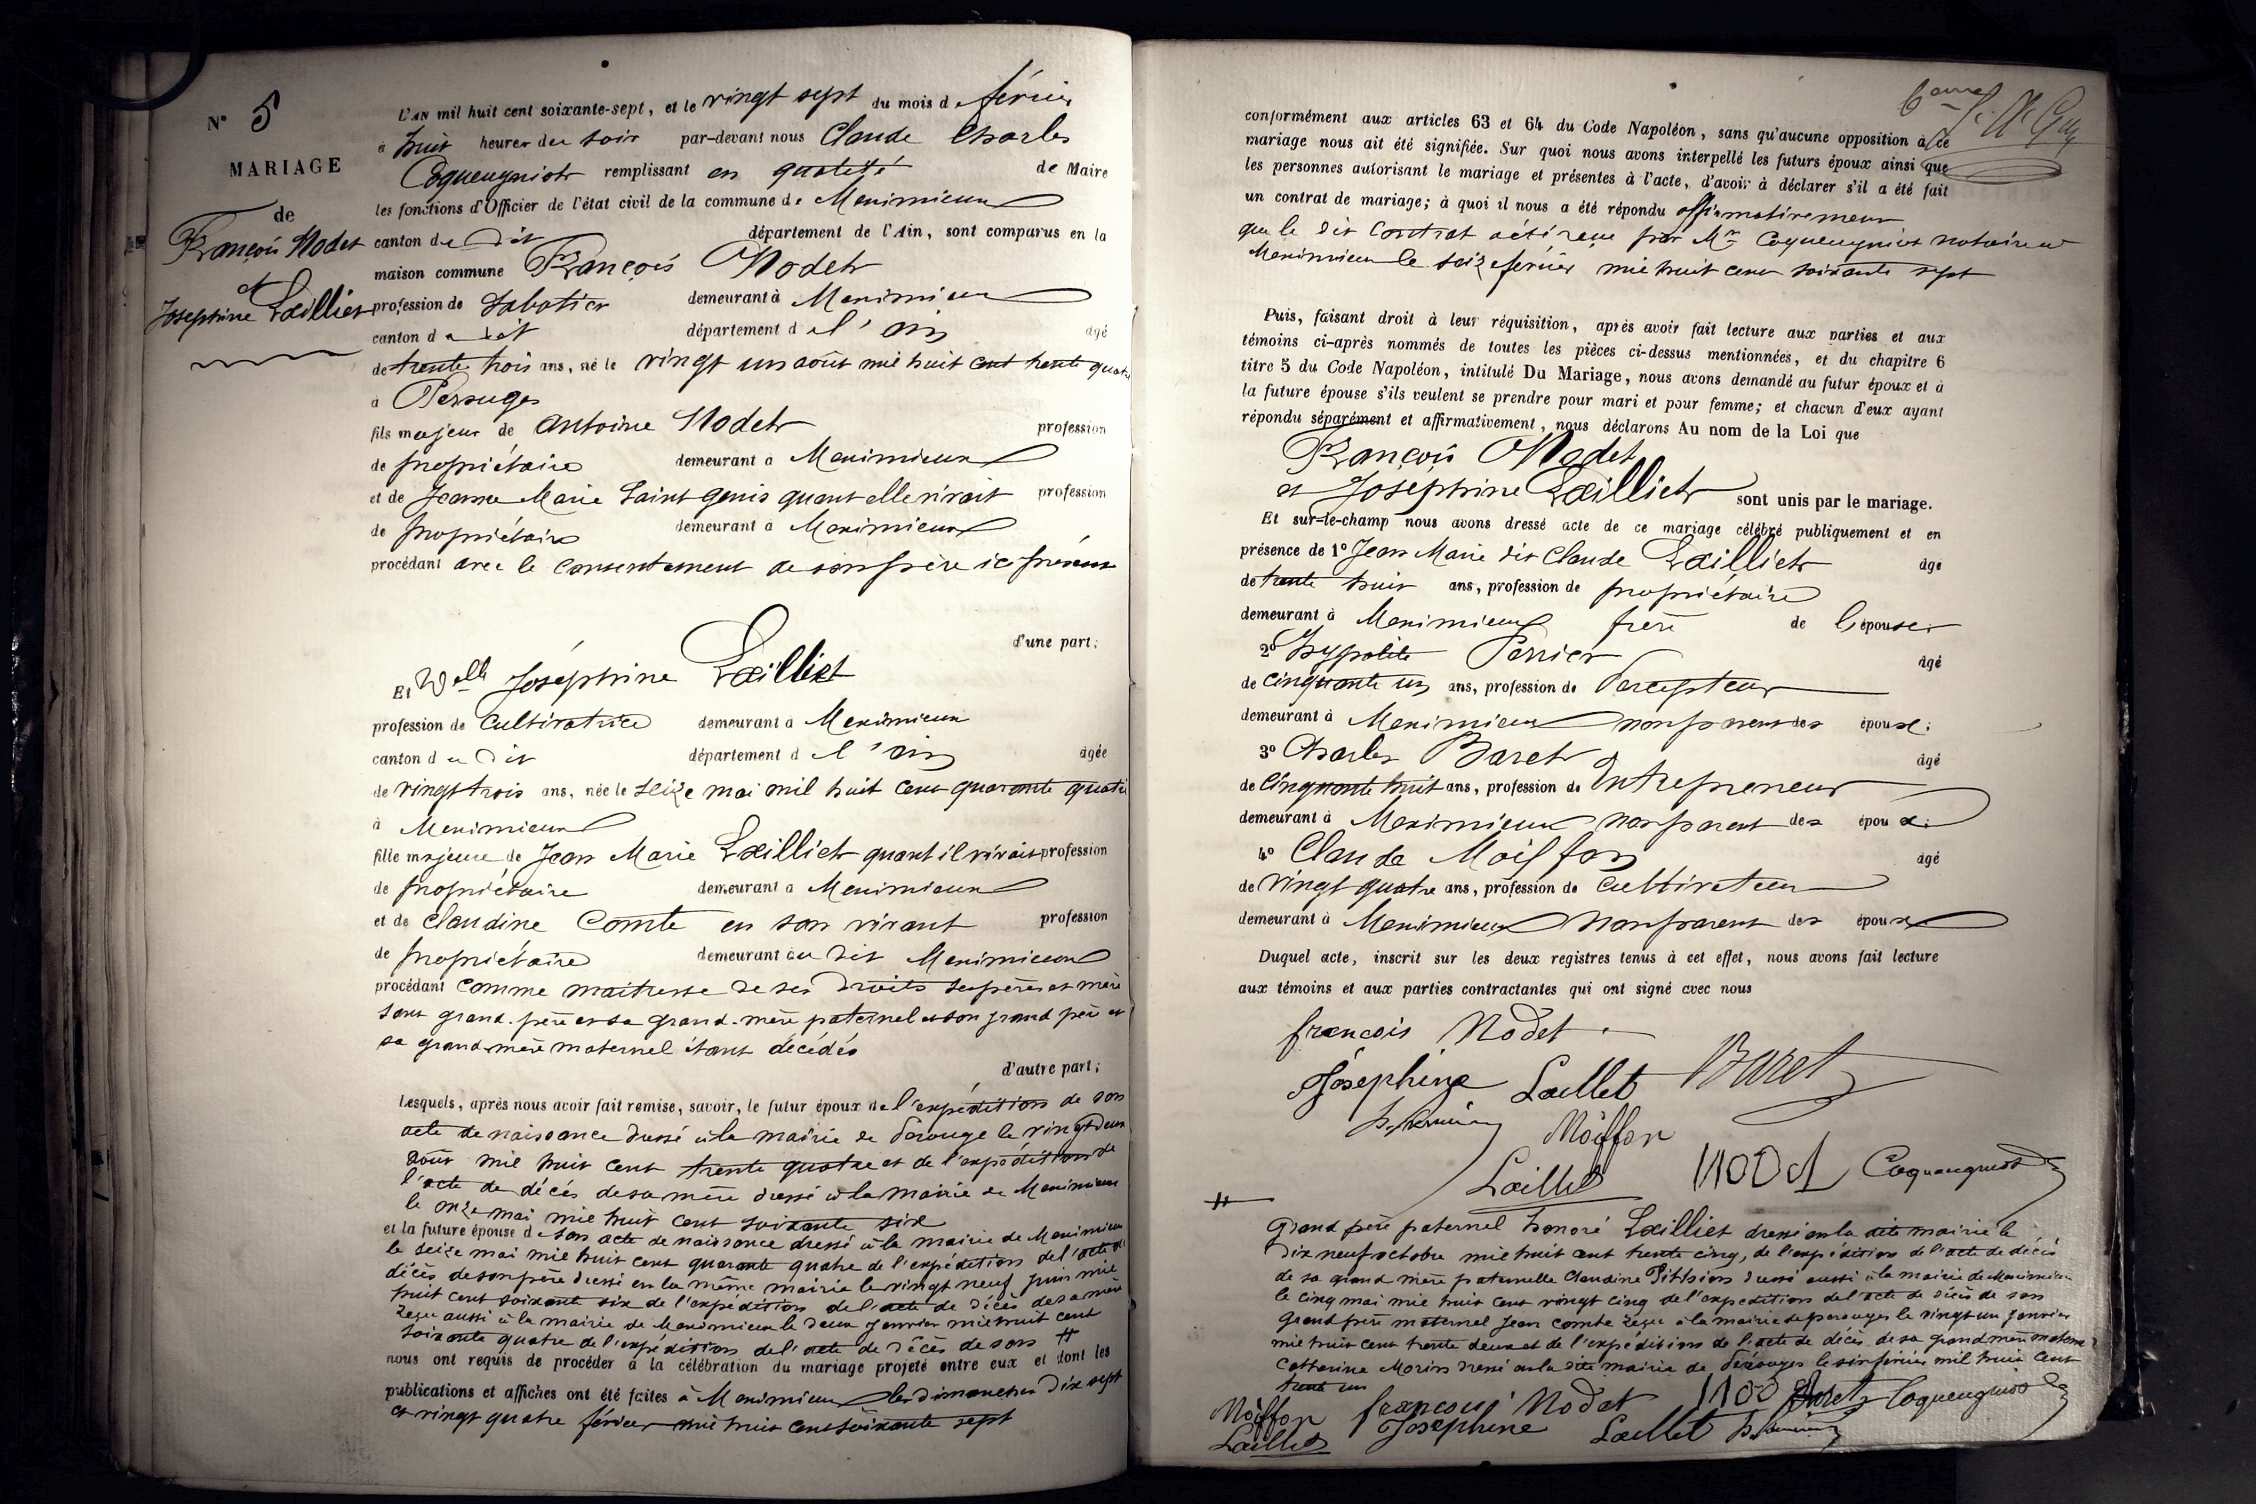 N° 5
MARIAGE
de
François Nodet
et
Joséphine Lailliet
L'AN mil huit cent soixante-sept, et le vingt sept du mois de février
à huit heures du soir par-devant nous Claude Charles
Coqueugniot remplissant en qualité de Maire
les fonctions d'Officier de l'état civil de la commune de Meximieux
canton du dit département de l'Ain, sont comparus en la
maison commune François Nodet
profession de Sabotier demeurant à Meximieux
canton du dit département de l'ain âgé
de trente trois ans, né le vingt un août mil huit cent trente quatre
à Perouges
fils majeur de Antoine Nodet profession
de propriétaire demeurant à Meximieux
et de Jeanne Marie Saint genis quant elle vivait profession
de propriétaire demeurant à Meximieux
procédant avec le consentement de son père ici présent
d'une part;
Et Delle Joséphine Lailliet
profession de cultivatrice demeurant à Meximieux
canton du dit département de l'ain âgée
de vingt trois ans, née le seize mai mil huit cent quarante quatre
à Meximieux
fille majeure de Jean Marie Lailliet quant il vivait profession
de propriétaire demeurant à Meximieux
et de Claudine Comte en son vivant profession
de propriétaire demeurant au dit Meximieux
procédant comme maitresse de ses droits ses père et mère
sont grand-père et sa grand-mère paternel et son grand père et
sa grand mère maternel étant décédés
d'autre part;
Lesquels, après nous avoir fait remise, savoir, le futur époux de l'expédition de son
acte de naissance dressé à la mairie de Pérouge le vingt deux
août mil huit cent trente quatre et de l'expédition de
l'acte de décés de sa mère dressé à la mairie de Meximieux
le onze mai mil huit cent soixante six
et la future épouse de son acte de naissance dressé à la mairie de Meximieux
le seize mai mil huit cent quarante quatre de l'expédition de l'acte de
décès de son père dressé en la même mairie le vingt neuf juin mil
huit cent soixante six de l'expédition de l'acte de décès de sa mère
reçu aussi à la mairie de Meximieux le deux Janvier mil huit cent
soixante quatre de l'expédition de l'acte de décès de son #
nous ont requis de procéder à la célébration du mariage projeté entre eux et dont les
publications et affiches ont été faites à Meximieux les dimanches dix sept
et vingt quatre février mil huit cent soixante sept
conformément aux articles 63 et 64 du Code Napoléon, sans qu'aucune opposition à ce
mariage nous ait été signifiée. Sur quoi nous avons interpellé les futurs époux ainsi que
les personnes autorisant le mariage et présentes à l'acte, d'avoir à déclarer s'il a été fait
un contrat de mariage; à quoi il nous a été répondu affirmativement
que le dit contrat a été reçu par Me Coqueugniot notaire à
Meximieux le seize février mil huit cent soixante sept
Puis, faisant droit à leur réquisition, après avoir fait lecture aux parties et aux
témoins ci-après nommés de toutes les pièces ci-dessus mentionnées, et du chapitre 6
titre 5 du Code Napoléon, intitulé Du Mariage, nous avons demandé au futur époux et à
la future épouse s'ils veulent se prendre pour mari et pour femme; et chacun d'eux ayant
répondu séparément et affirmativement, nous déclarons Au nom de la Loi que
François Nodet
et Joséphine Lailliet sont unis par le mariage.
Et sur-le-champ nous avons dressé acte de ce mariage célébré publiquement et en
présence de 1° Jean Marie dit Claude Lailliet âgé
de trente huit ans, profession de propriétaire
demeurant à Meximieux frère de l'épouse;
2° Hyppolite Perrier âgé
de cinquante un ans, profession de Percepteur
demeurant à Meximieux non parent des époux;
3° Charles Baret âgé
de cinquante huit ans, profession de Entrepreneur
demeurant à Meximieux non parent des époux;
4° Claude Moiffon âgé
de vingt quatre ans, profession de cultivateur
demeurant à Meximieux non parent des époux
Duquel acte, inscrit sur les deux registres tenus à cet effet, nous avons fait lecture
aux témoins et aux parties contractantes qui ont signé avec nous
francois Nodet
Joséphine Laillet Baret
Moiffon
Laillet Nodet Coqueugniot
#
Grand père paternel honoré Lailliet dressé en la dite mairie le
dix neuf octobre mil huit cent trente cinq, de l'expédition de l'acte de décès
de sa grand mère paternelle Claudine dressé aussi à la mairie de Meximieux
le cinq mai mil huit cent vingt cinq de l'expedition de l'acte de décès de son
grand père maternel Jean Comte reçu à la mairie de perouges le vingt un janvier
mil huit cent trente deux et de l'expédition de l'acte de décès de sa grand mère maternelle
Catherine Morin dressé en la dite mairie de Pérouges le six février mil huit cent
trente un
Moiffon francois Nodet Nodet Baret Coqueugniot
Laillet Josephine Laillet